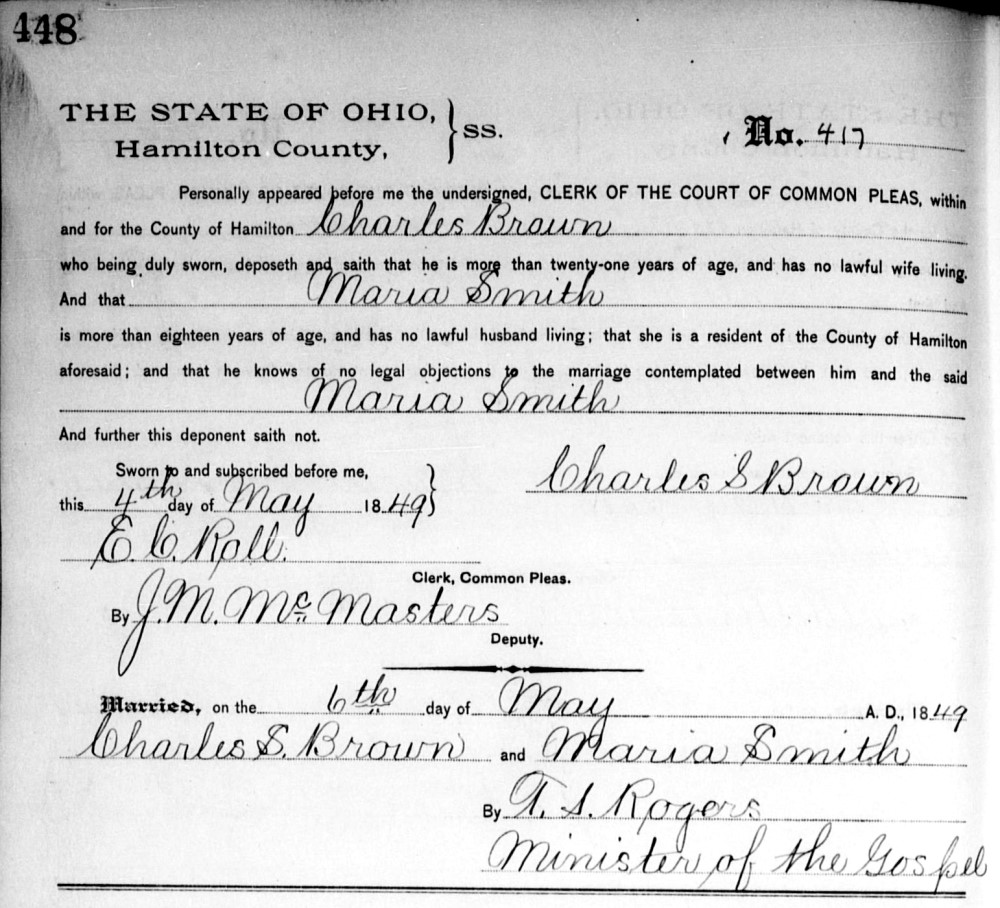 448
THE STATE OF OHIO, } SS.
Hamilton County,
No. 417
Personally appeared before me the undersigned, CLERK OF THE COURT OF COMMON PLEAS, within
and for the County of Hamilton Charles Brown
who being duly sworn, deposeth and saith that he is more than twenty-one years of age, and has no lawful wife living.
And that Maria Smith
is more than eighteen years of age, and has no lawful husband living; that she is a resident of the County of Hamilton
aforesaid; and that he knows of no legal objections to the marriage contemplated between him and the said
Maria Smith
And further this deponent saith not.
Sworn to and subscribed before me,
this 4th day of May 1849 }
Charles S Brown
E. C. Roll.
Clerk, Common Pleas.
By J. M. McMasters
Deputy.
Married, on the 6th day of May A. D., 1849
Charles S. Brown and Maria Smith
By T. S. Rogers
Minister of the Gospel